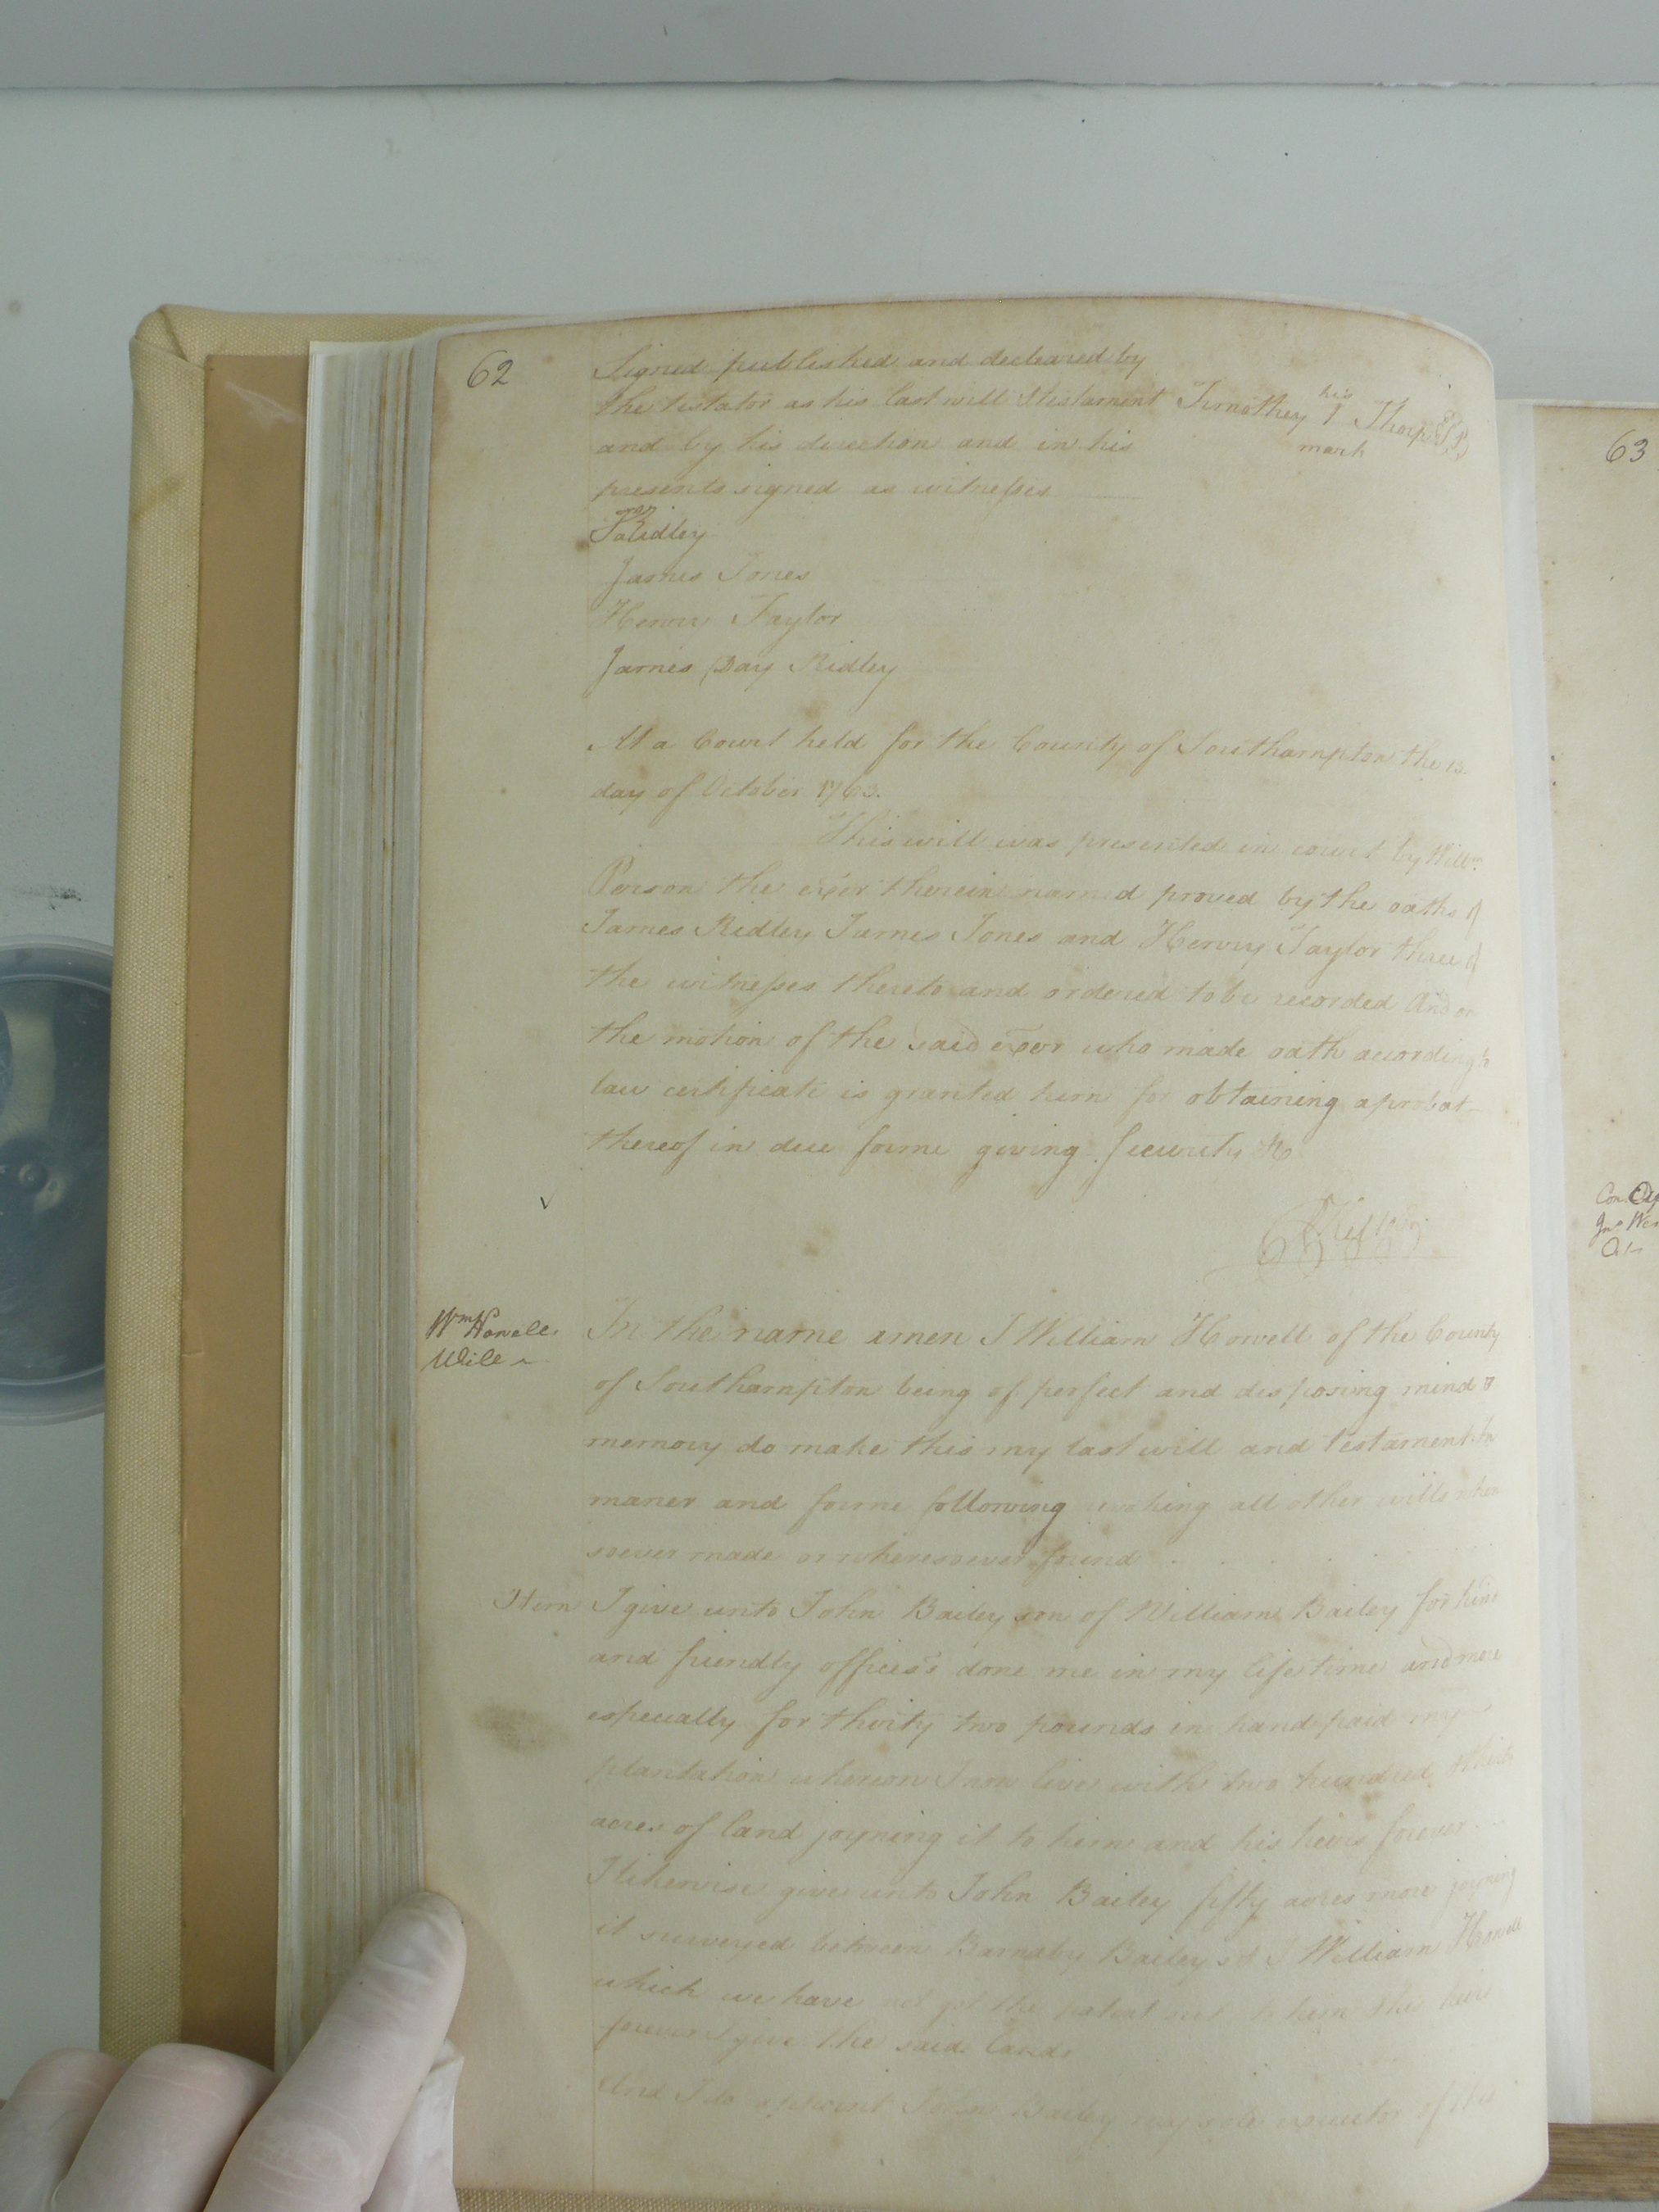 62
Signed published and decleared by
the testator as his last will & testament Timothey his T Thorp
and by his direction and in his mark
presents signed as witnesses
Ridley
James Jones
Henry Taylor
James Day Ridley
At a Court held for the County of Southampton the 13.
day of October 1763.
This will was presented in court by Willm.
Person the exor therein named proved by the oaths of
James Ridley James Jones and Henry Taylor three of
the witnesses thereto and ordered to be recorded And on
the motion of the said exor who made oath according to
law certificate is granted him for obtaining a probat
thereof in due forme giving security &c
Wm Howells
Will
In the name amen I William Howell of the County
of Southampton being of perfect and desposing mind &
memory do make this my last will and testament in
maner and forme following revoking all other wills when
soever made or wheresoever found
Item I give unto John Bailey son of William Bailey for kind
and friendly offices's done me in my life time and more
especially for thirty two pounds in hand paid my
plantation whereon I now live with two hundred thirty
acres of land joyning it to him and his heirs forever
I likewise give unto John Bailey fifty acres more joyning
it surveyed between Barnaby Bailey & I William Howell
which we have not got the patent out to him & his heirs
forever I give the said land
And I do appoint John Bailey my sole executor of this
63
Con
Jno